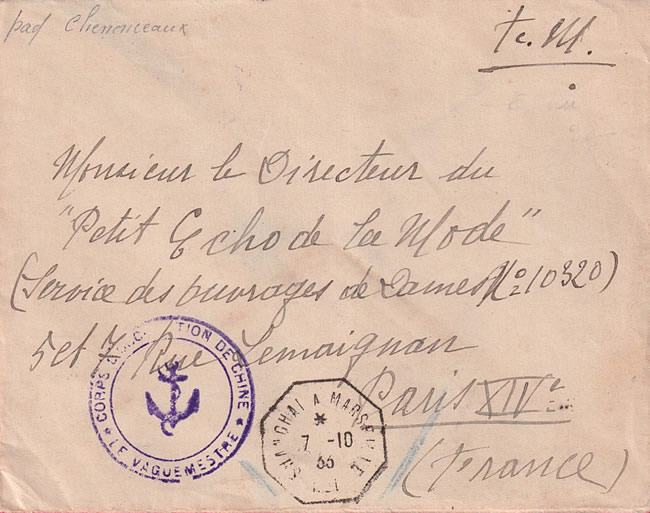 paq Chenonceaux
F. M.
Monsieur le Directeur du
"Petit Echo de la Mode"
(Service des ouvrages de Dames No 10320)
5 et 7 Rue Lemaignan
Paris XIVe
(France)
CORPS D'OCCUPATION DE CHINE
★ LE VAGUEMESTRE ★
SHANGHAI A MARSEILLE
*
7 -10
36